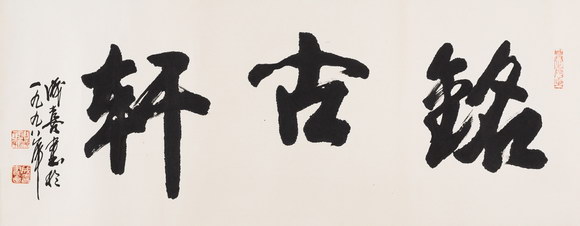 銘古軒
成喜書於
一九九八年